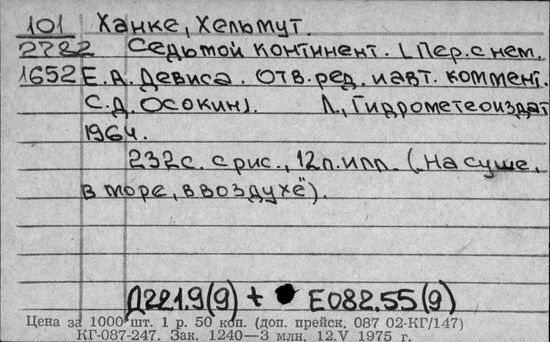 101 Ханке, Хельмут.
2722 Седьмой континент. [Пер. с нем.
1652 Е.А. Девиса. Отв. ред. и авт. коммент.
С.Д. Осокин]. Л., Гидрометеоиздат
1964.
232 с. с рис., 12 л. илл. („На суше,
в море, в воздухе").
Д221.9(9) + Е082.55(9)
Цена за 1000 шт. 1 р. 50 коп. (доп. прейск. 087 02-КГ/147)
КГ-087-247. Зак. 1240—3 млн. 12.V 1975 г.